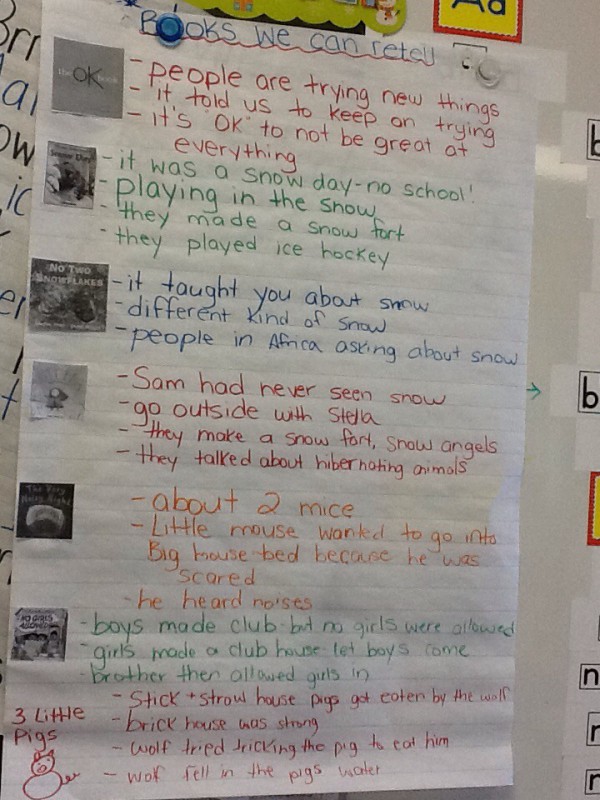 Books we can retell
Aa
the OK book
- people are trying new things
- it told us to keep on trying
- it's "OK" to not be great at
everything
- it was a snow day-no school!
- playing in the snow
- they made a snow fort
- they played ice hockey
NO TWO
SNOWFLAKES
- it taught you about snow
- different kind of snow
- people in Africa asking about snow
- Sam had never seen snow
- go outside with Stella
- they make a snow fort, snow angels
- they talked about hibernating animals
The Very
Noisy Night
- about 2 mice
- Little mouse wanted to go into
Big mouse-bed because he was
scared
- he heard noises
NO GIRLS
ALLOWED
- boys made club-but no girls were allowed
- girls made a club house let boys come
- brother then allowed girls in
3 Little
Pigs
- Stick + straw house pigs got eaten by the wolf
- brick house was strong
- wolf tried tricking the pig to eat him
- wolf fell in the pigs water